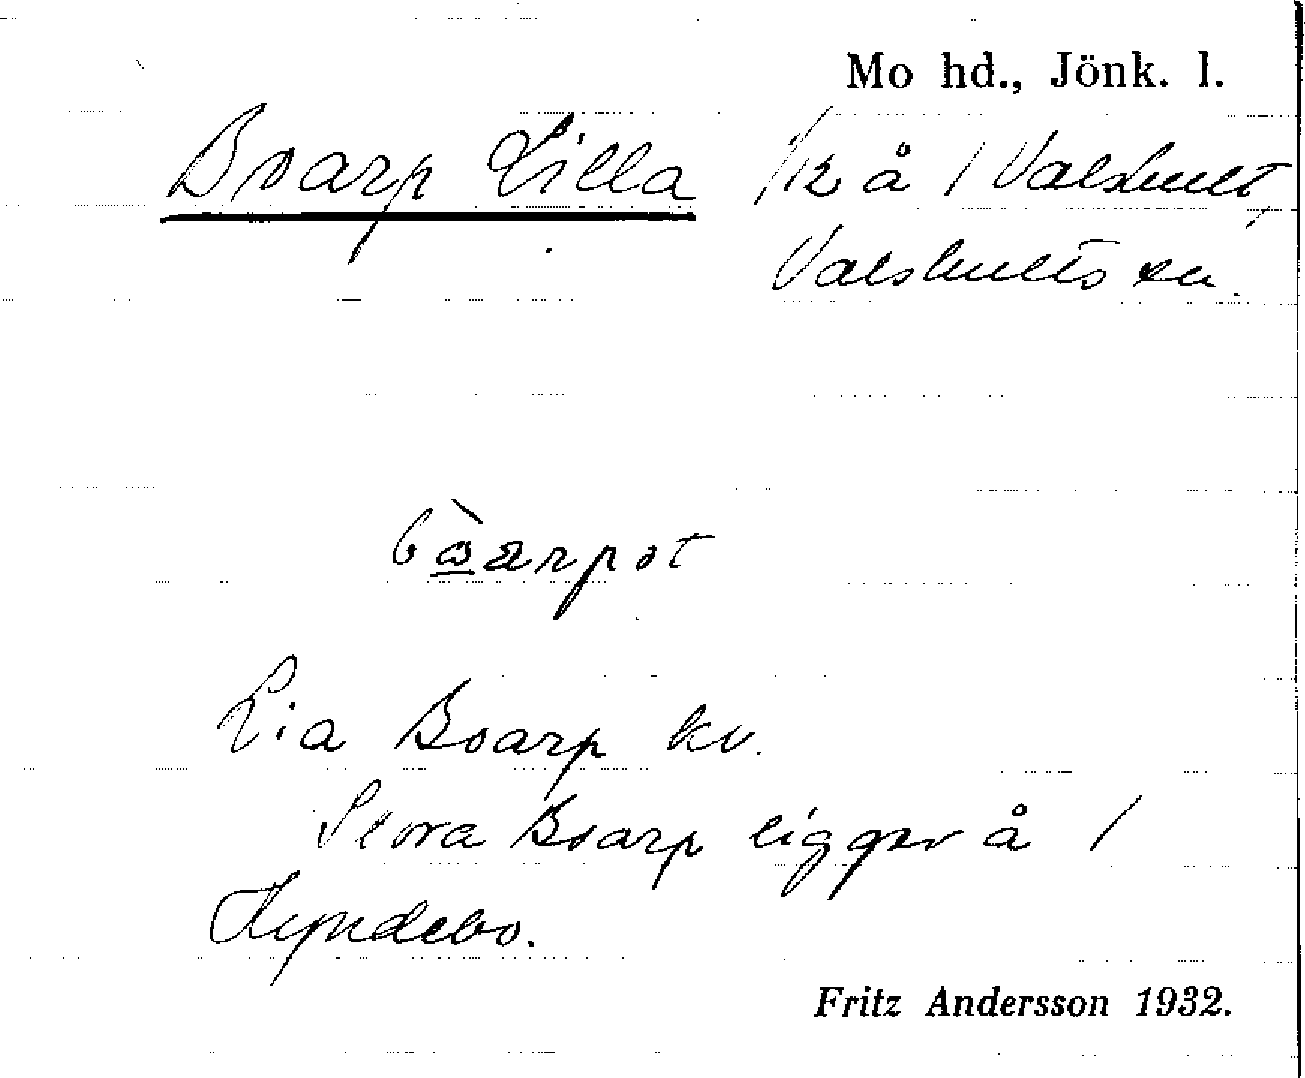 Mo hd., Jönk. l.
Boarp Lilla 1/12 å 1 Valshult,
Valshults sn.
Lia Boarp kv.
Stora Boarp ligger å 1
Hyndebo.
Fritz Andersson 1932.